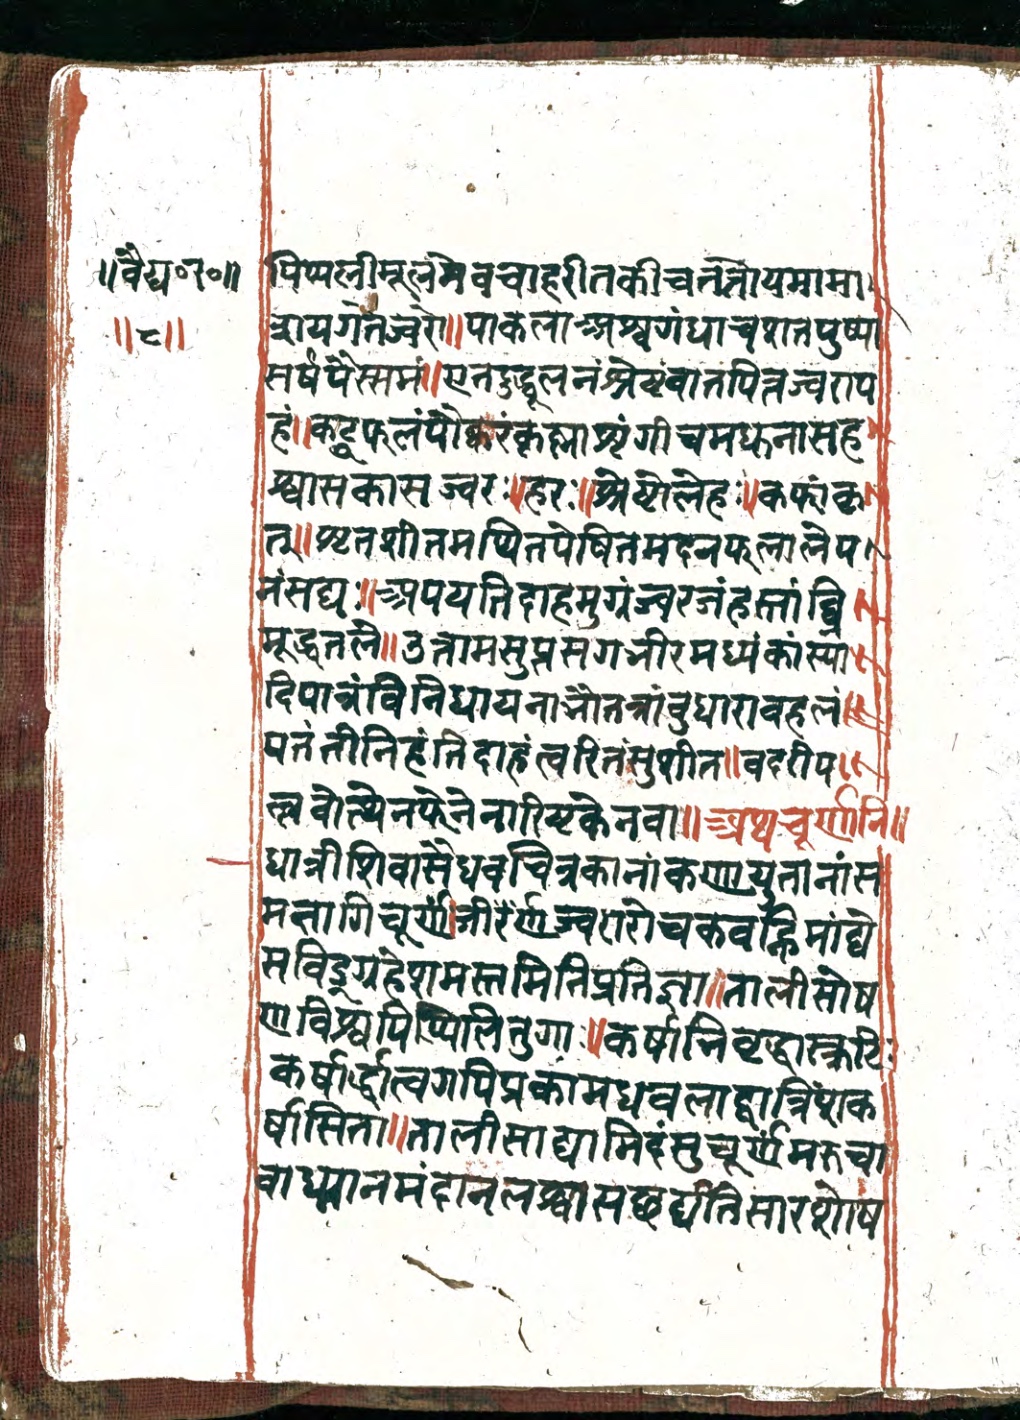 ॥वैद्य॰र॰॥
॥८॥
पिप्पलीमूलमेवचाहरीतकीचनत्तोयमामा
न्रायगेतज्वरो॥पाकलाअश्वगंधाचशतपुष्पा
सर्षपैस्समं॥एनदुद्धूलनंश्रेष्टंवातपित्तज्वराप
हं॥कट्फलंपौष्करंकृष्णाशृंगीचमधुनासह
श्वासकासज्वरः॥हरः॥श्रेष्टोलेहः॥कफांकृ
त्॥शृतशीतमप्पितपेषितमदनफलालेप
नंसद्यः॥अपयतिदाहमुग्रंज्वरजंहस्तांघ्रि
मूर्द्धतले॥उत्तामसुप्तसगभीरमध्यंकांस्या
दिपात्रंविनिधायनाभौतत्रांबुधारावहलं
पतंतीनिहंतिदाहंत्वरितंसुशीत॥वदरीप
ल्लवोत्थेनफेनेनारिष्टकेनवा॥अथचूर्णानि॥
धात्रीशिवासैंधवचित्रकानांकणायुतानांस
मत्तागिचूर्णं॥जीर्णज्वरारोचकवह्निमांद्ये
सविड्ग्रहेशमस्तमितिप्रतिज्ञा॥तालीसोष
णविश्वपिप्पिलितुगाः॥कर्षानिवृद्धास्त्रुटिः
कर्षार्द्धात्वगपिप्रकामधवलाद्वात्रिंशक
र्षासिता॥तालीसाद्यामिदंसुचूर्णंमरुचा
वाध्मानमंदानलश्वासछर्द्यतिसारशोष